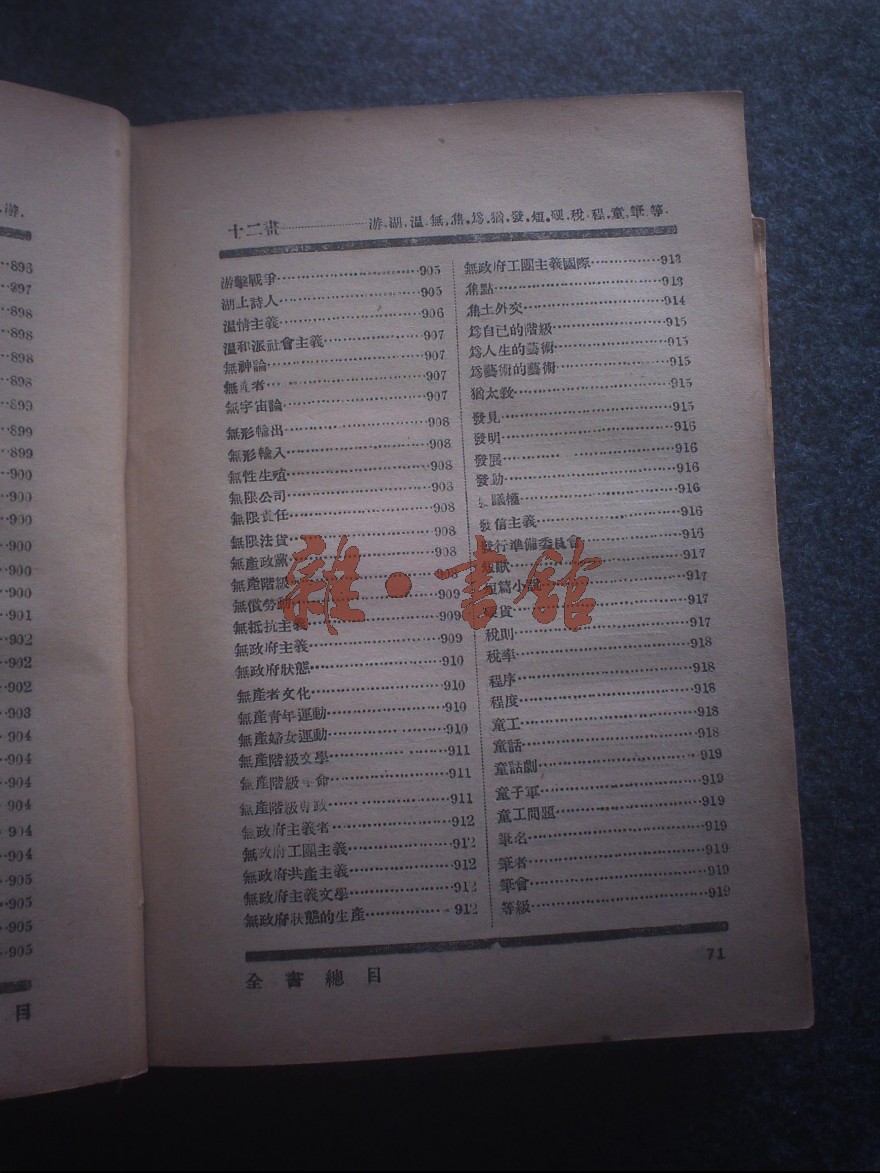 游.
896
897
898
898
898
898
899
899
899
900
900
900
900
900
900
901
902
902
902
903
904
904
904
904
904
904
905
905
905
905
目
十二畫 游.湖.溫.無.焦.爲.猶.發.短.硬.稅.程.童.筆.等.
游擊戰爭 905
湖上詩人 905
溫情主義 906
溫和派社會主義 907
無神論 907
無產者 907
無宇宙論 907
無形輸出 908
無形輸入 908
無性生殖 908
無限公司 908
無限責任 908
無限法貨 908
無產政黨 908
無產階級 908
無償勞動 909
無抵抗主義 909
無政府主義 909
無政府狀態 910
無產者文化 910
無產青年運動 910
無產婦女運動 910
無產階級文學 911
無產階級革命 911
無產階級專政 911
無政府主義者 912
無政府工團主義 912
無政府共產主義 912
無政府主義文學 912
無政府狀態的生產 912
無政府工團主義國際 913
焦點 913
焦土外交 914
爲自己的階級 915
爲人生的藝術 915
爲藝術的藝術 915
猶太教 915
發見 915
發明 916
發展 916
發動 916
議權 916
發信主義 916
發行準備委員會 916
短歐 917
短篇小說 917
貨 917
稅則 917
稅率 918
程序 918
程度 918
童工 918
童話 918
童話劇 919
童子軍 919
童工問題 919
筆名 919
筆者 919
筆會 919
等級 919
全書總目
71
雜·書館